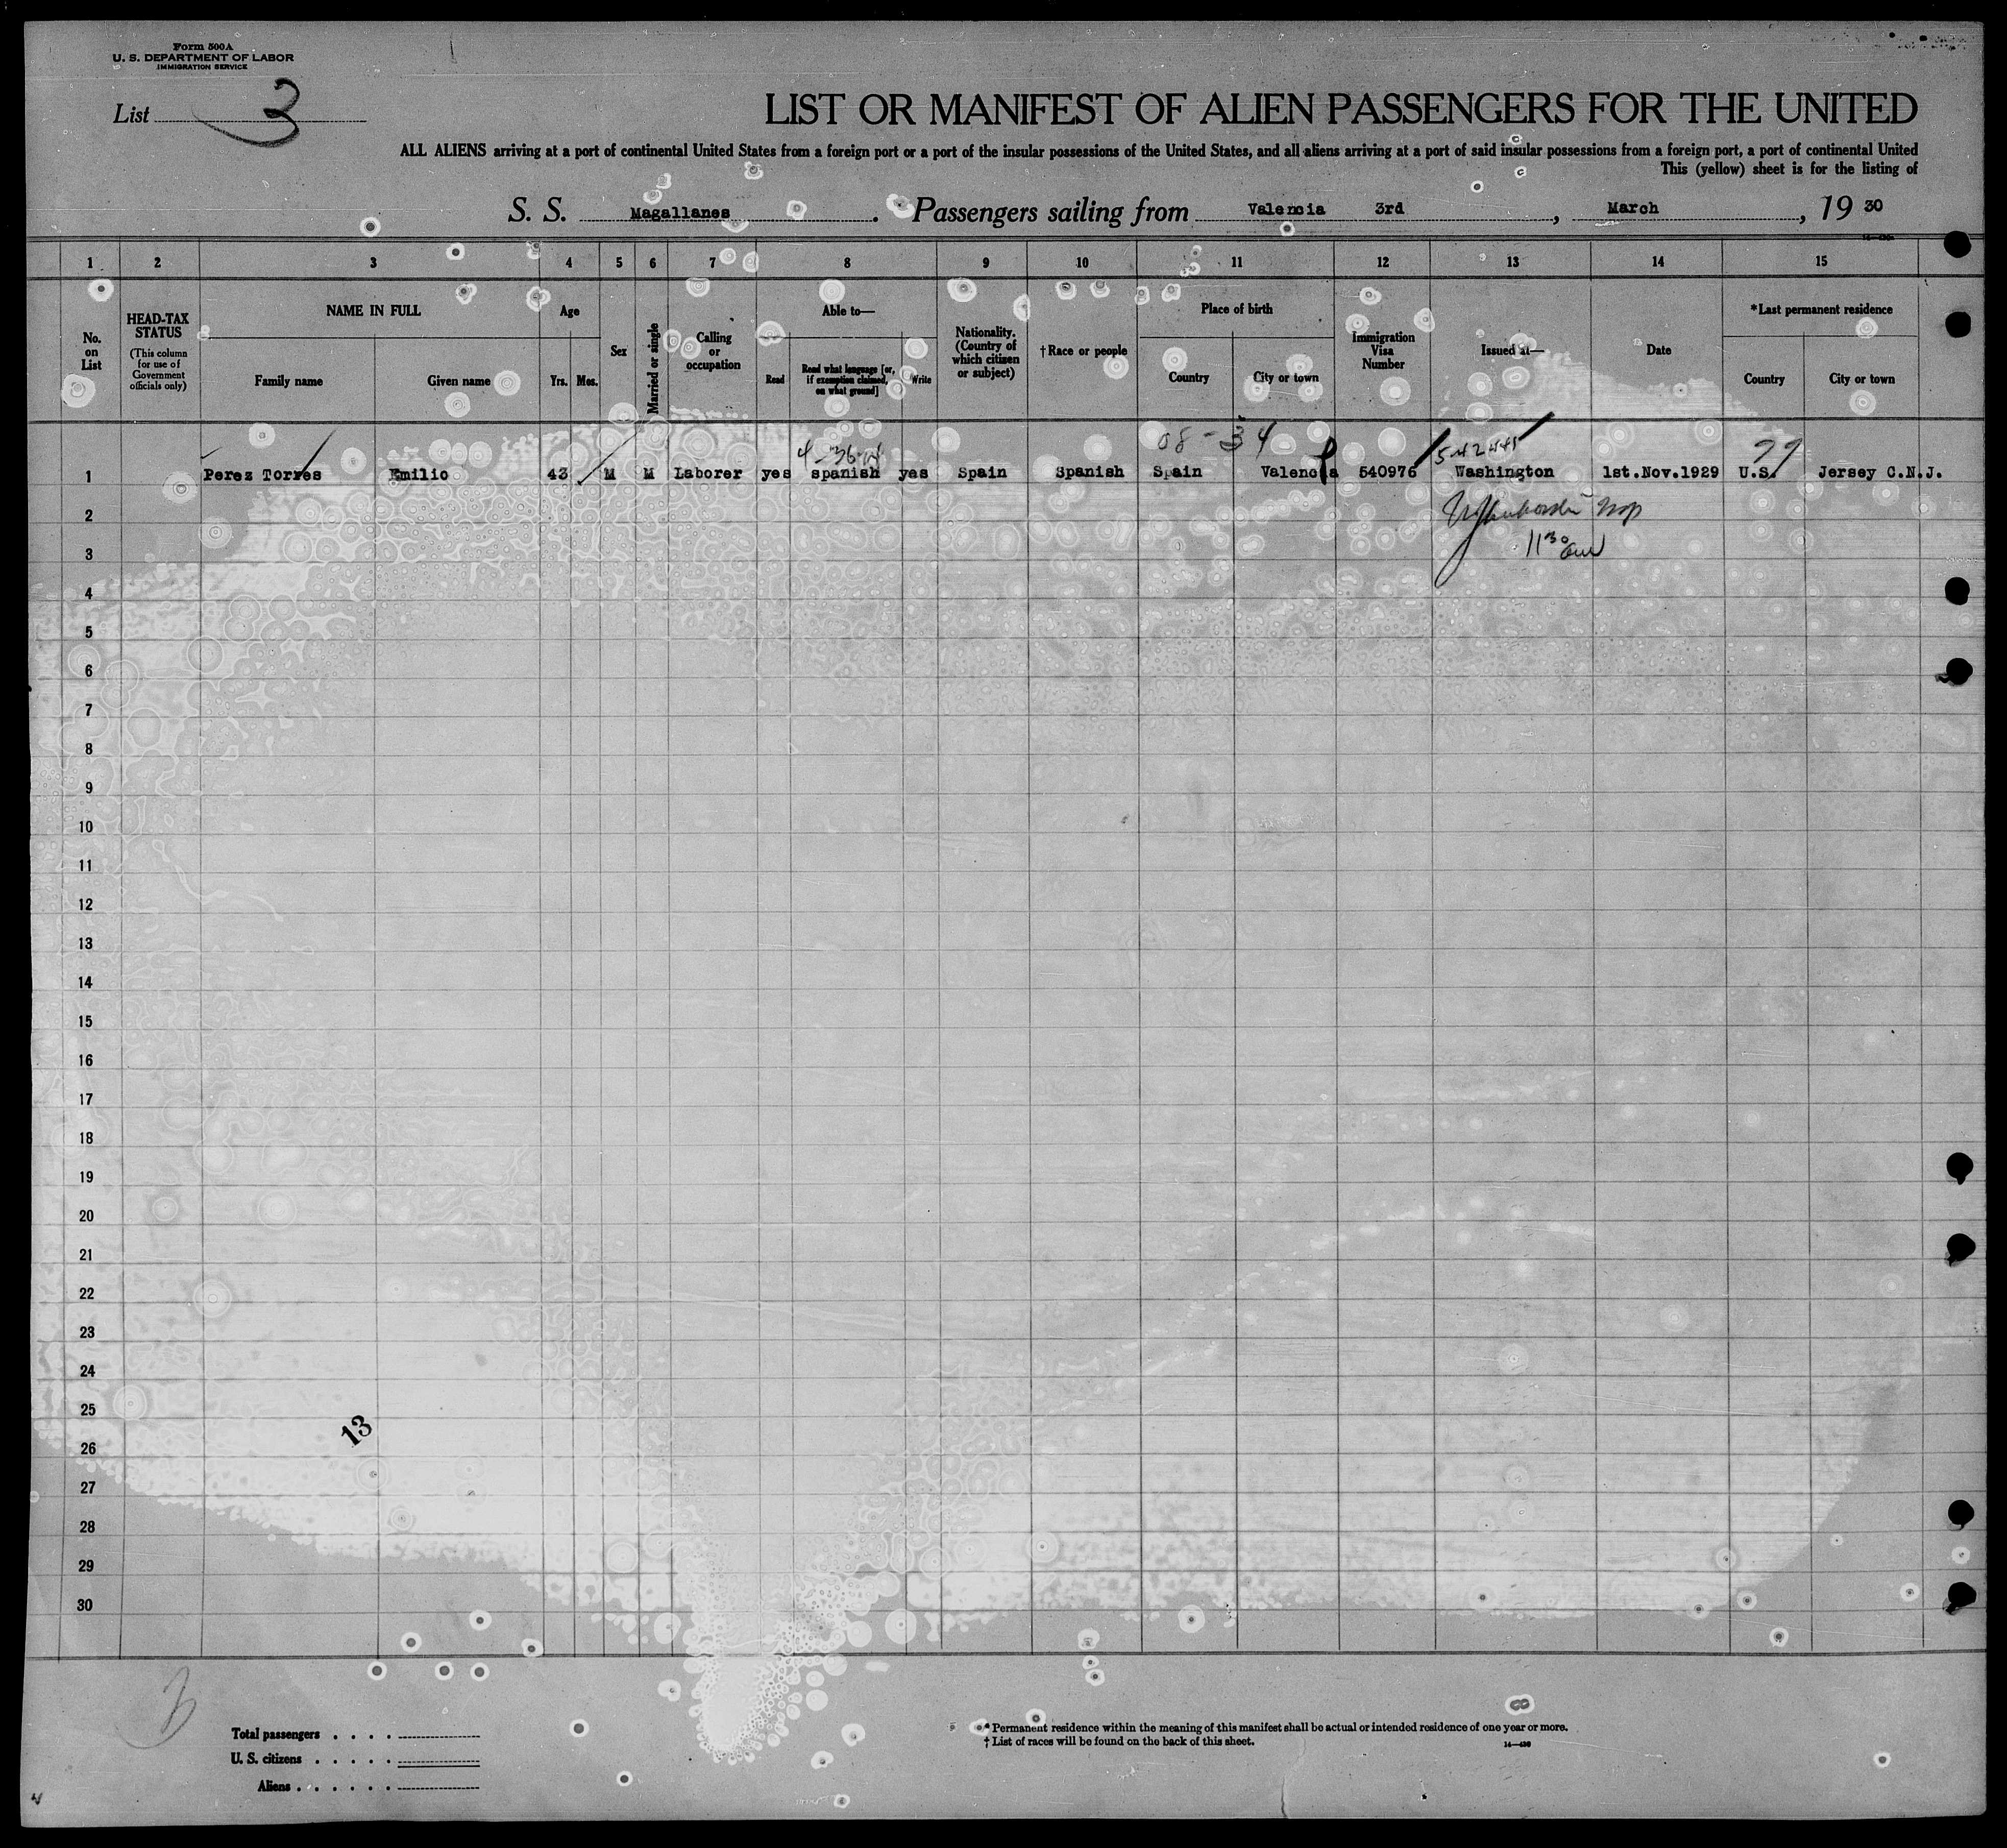 Form 500A
U. S. DEPARTMENT OF LABOR
IMMIGRATION SERVICE
List 3
LIST OR MANIFEST OF ALIEN PASSENGERS FOR THE UNITED
ALL ALIENS arriving at a port of continental United States from a foreign port or a port of the insular possessions of the United States, and all aliens arriving at a port of said insular possessions from a foreign port, a port of continental United
This (yellow) sheet is for the listing of
S. S. Magallanes. Passengers sailing from Valencia 3rd, March, 19 30
1 2 3 4 5 6 7 8 9 10 11 12 13 14 15
No. on List
HEAD-TAX STATUS
(This column for use of Government officials only)
NAME IN FULL
Family name
Given name
Age
Yrs. Mos.
Sex
Married or single
Calling or occupation
Able to—
Read
Read what language [or, if exemption claimed, on what ground]
Write
Nationality. (Country of which citizen or subject)
†Race or people
Place of birth
Country
City or town
Immigration Visa Number
Issued at—
Date
*Last permanent residence
Country
City or town
08-34
1 Perez Torres Emilio 43 M M Laborer yes spanish yes Spain Spanish Spain Valencia 540976 Washington 1st.Nov.1929 U.S. Jersey C.N.J.
2
3
4
5
6
7
8
9
10
11
12
13
14
15
16
17
18
19
20
21
22
23
24
25
13
26
27
28
29
30
Total passengers
U. S. citizens
Aliens
* Permanent residence within the meaning of this manifest shall be actual or intended residence of one year or more.
† List of races will be found on the back of this sheet.